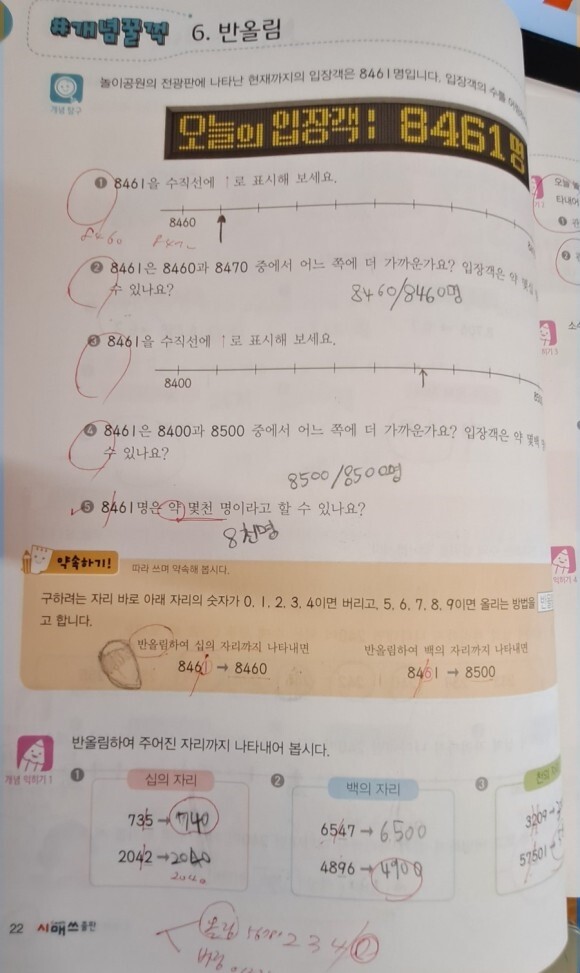 #개념꿀꺽 6. 반올림
개념 탐구
놀이공원의 전광판에 나타난 현재까지의 입장객은 8461명입니다. 입장객의 수를
오늘의 입장객: 8461명
❶ 8461을 수직선에 ↑로 표시해 보세요.
8460
8460
❷ 8461은 8460과 8470 중에서 어느 쪽에 더 가까운가요? 입장객은 약 몇십
수 있나요?
8460/8460명
❸ 8461을 수직선에 ↑로 표시해 보세요.
8400
❹ 8461은 8400과 8500 중에서 어느 쪽에 더 가까운가요? 입장객은 약 몇백
수 있나요?
8500/8500명
❺ 8461명은 약 몇천 명이라고 할 수 있나요?
8천명
약속하기! 따라 쓰며 약속해 봅시다.
구하려는 자리 바로 아래 자리의 숫자가 0, 1, 2, 3, 4이면 버리고, 5, 6, 7, 8, 9이면 올리는 방법을
고 합니다.
반올림하여 십의 자리까지 나타내면
8461 → 8460
반올림하여 백의 자리까지 나타내면
8461 → 8500
개념 익히기 1
반올림하여 주어진 자리까지 나타내어 봅시다.
❶ 십의 자리
735 → 740
2042 → 2040
2040
❷ 백의 자리
6547 → 6500
4896 → 4900
❸
3209 →
57501 →
22 시매쓰출판
올림
버림